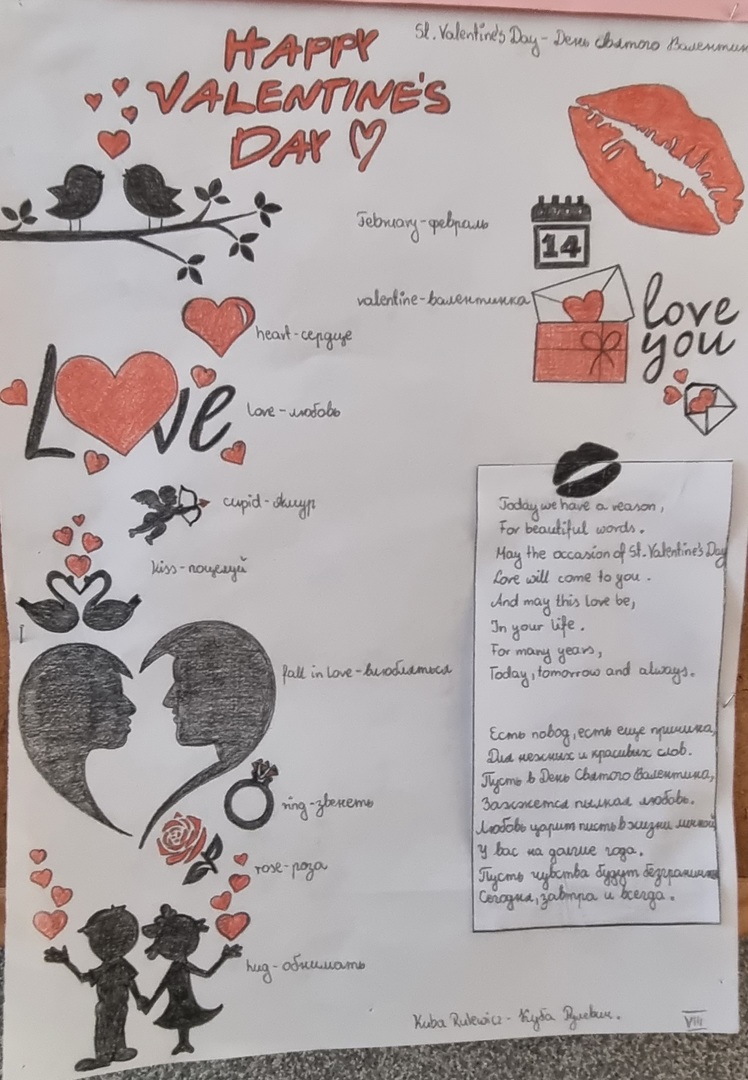 HAPPY
VALENTINE'S
DAY
St. Valentine's Day - День Святого Валентин
February - февраль
14
valentine - валентинка
love
you
heart - сердце
Love
love - любовь
cupid - Амур
kiss - поцелуй
fall in love - влюбляться
ring - звенеть
rose - роза
hug - обнимать
Today we have a reason,
For beautiful words.
May the occasion of St. Valentine's Day
Love will come to you.
And may this love be,
In your life.
For many years,
Today, tomorrow and always.
Есть повод, есть еще причина,
Для нежных и красивых слов.
Пусть в День Святого Валентина,
Зажжется пылкая любовь.
Любовь царит пусть в жизни
У вас на долгие года.
Пусть чувства будут
Сегодня, завтра и всегда.
Kuba Rulewicz - Куба
VIII